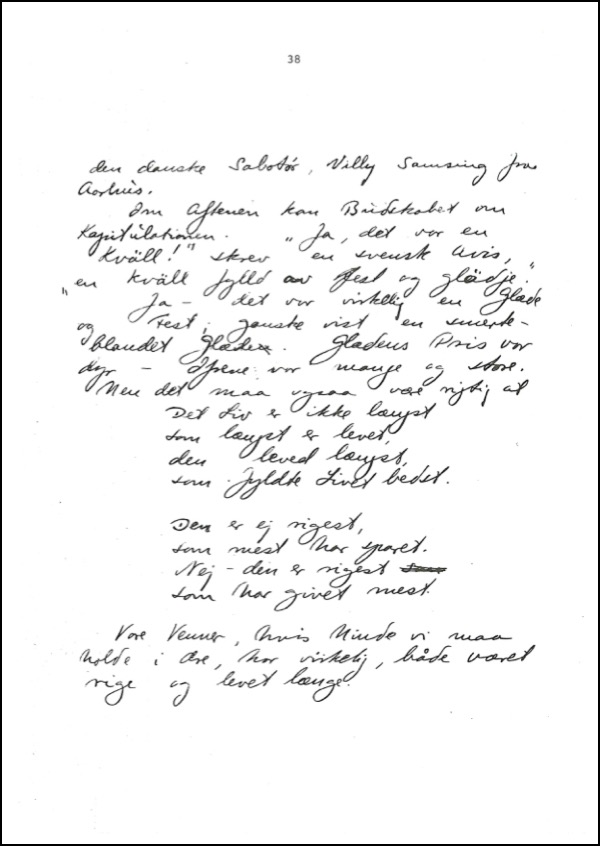 38
den danske Sabotør, Villy Samsing fra
Aarhus.
Om Aftenen kom Budskabet om
Kapitulationen. "Ja, det var en
Kväll!" skrev en svensk Avis,
"en kväll fylld av fest og glädje."
Ja - det var virkelig en Glæde
og Fest, ganske vist en smerte-
blandet Glæde. Glædens Pris var
dyr - Ofrene var mange og store.
Men det maa ogsaa være rigtig at
Det Liv er ikke længst
som længst er levet,
den leved længst,
som fyldte Livet bedst.
Den er ej rigest,
som mest har sparet.
Nej - den er rigest
som har givet mest.
Vore Venner, hvis Minde vi maa
holde i Ære, har virkelig, både været
rige og levet længe.